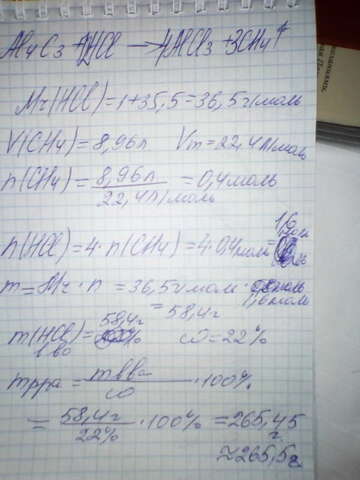 Al4C3 + 12HCl → 4AlCl3 + 3CH4↑
Mr(HCl) = 1+35,5 = 36,5 г/моль
V(CH4) = 8,96л Vm = 22,4 л/моль
n(CH4) = 8,96л / 22,4л/моль = 0,4моль
n(HCl) = 4·n(CH4) = 4·0,4моль = 1,6 моль
m = Mr·n = 36,5г/моль · 1,6моль
= 58,4г
m(HCl) = 58,4г ω = 22%
в-во
mр-ра = mв-ва / ω · 100%
= 58,4г / 22% · 100% = 265,45 г
≈ 265,5г